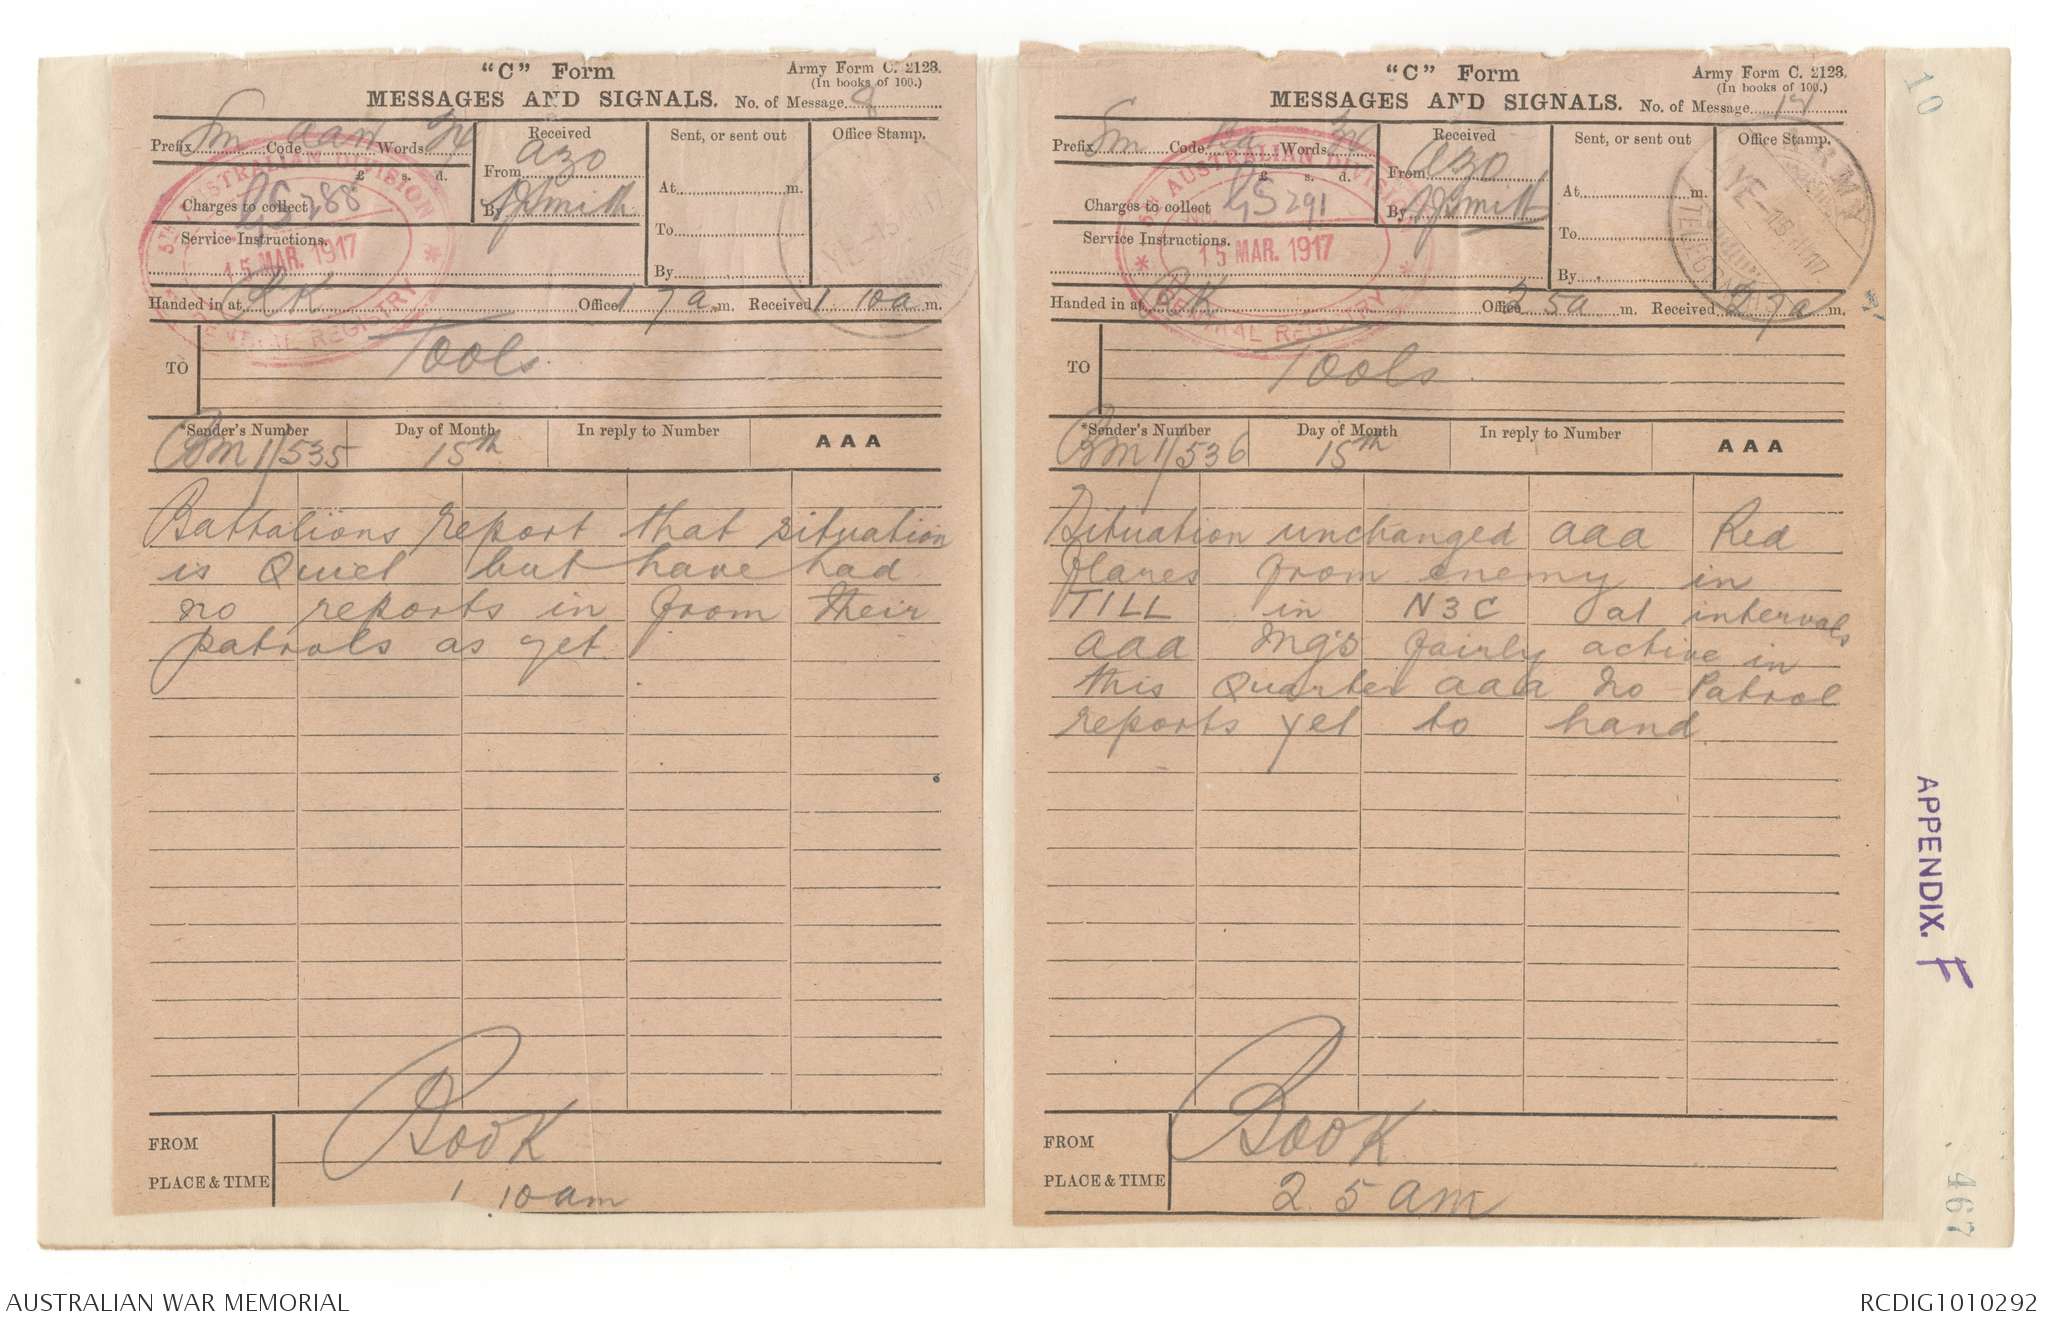 "C" Form
Army Form C. 2123.
(In books of 100.)
MESSAGES AND SIGNALS. No. of Message
Prefix Sm Code Words
Received
From azo
By JSmith
Sent, or sent out
At m.
To
By
Office Stamp.
£ s. d.
Charges to collect
GS 288
Service Instructions.
5TH AUSTRALIAN DIVISION
15 MAR. 1917
GENERAL REGISTRY
Handed in at Office 1 7a m. Received 1 10a m.
TO Tools
*Sender's Number Day of Month In reply to Number AAA
Bm 1/535 15th
Battalions report that situation
is Quiet but have had
no reports in from their
patrols as yet.
FROM Book
PLACE & TIME 1 10am
"C" Form
Army Form C. 2123.
(In books of 100.)
MESSAGES AND SIGNALS. No. of Message 17
Prefix Sm Code Words
Received
From azo
By JSmith
Sent, or sent out
At m.
To
By
Office Stamp.
ARMY
YE - 15.III.17
TELEGRAPHS
£ s. d.
Charges to collect
GS 291
Service Instructions.
5TH AUSTRALIAN DIVISION
15 MAR. 1917
GENERAL REGISTRY
Handed in at Office 2 5a m. Received 2 7a m.
TO Tools
*Sender's Number Day of Month In reply to Number AAA
Bm 1/536 15th
Situation unchanged aaa Red
flares from enemy in
TILL in N3C at intervals
aaa Mg's fairly active in
this Quarter aaa no Patrol
reports yet to hand.
FROM Book
PLACE & TIME 2 5 am
10
APPENDIX. F
467
AUSTRALIAN WAR MEMORIAL
RCDIG1010292